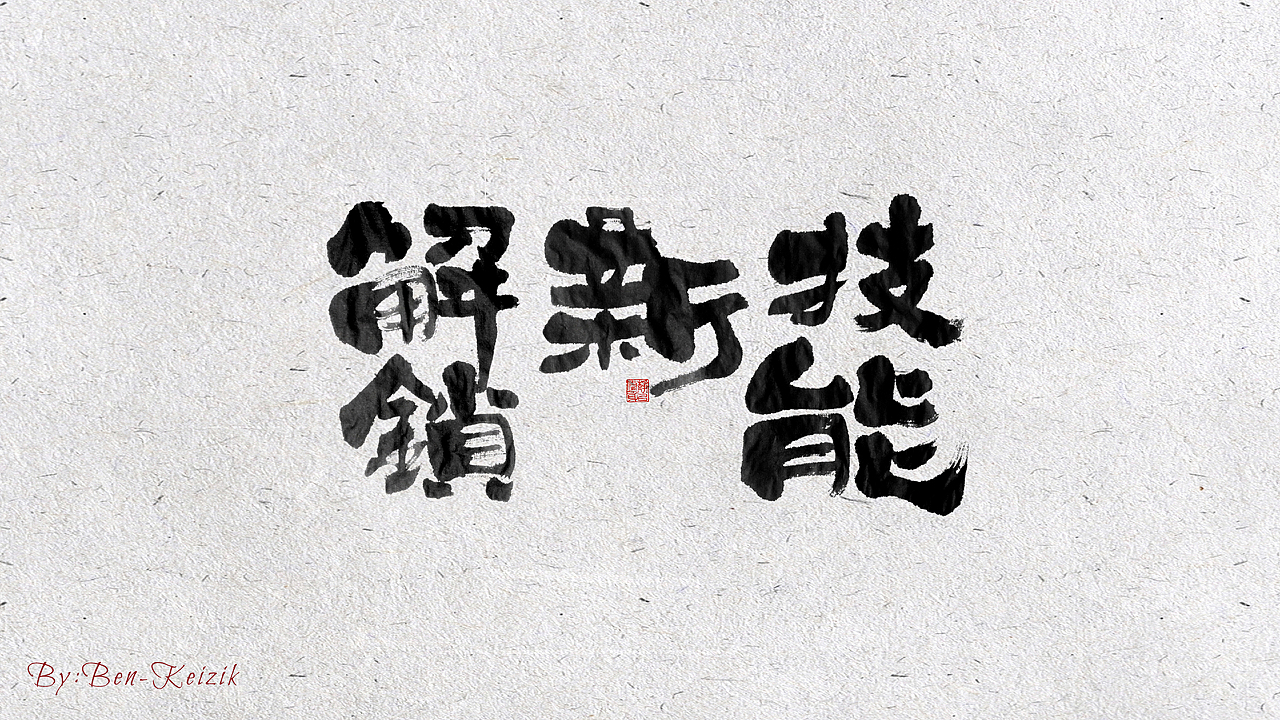 解鎖
新
技能
By:Ben-Keizik